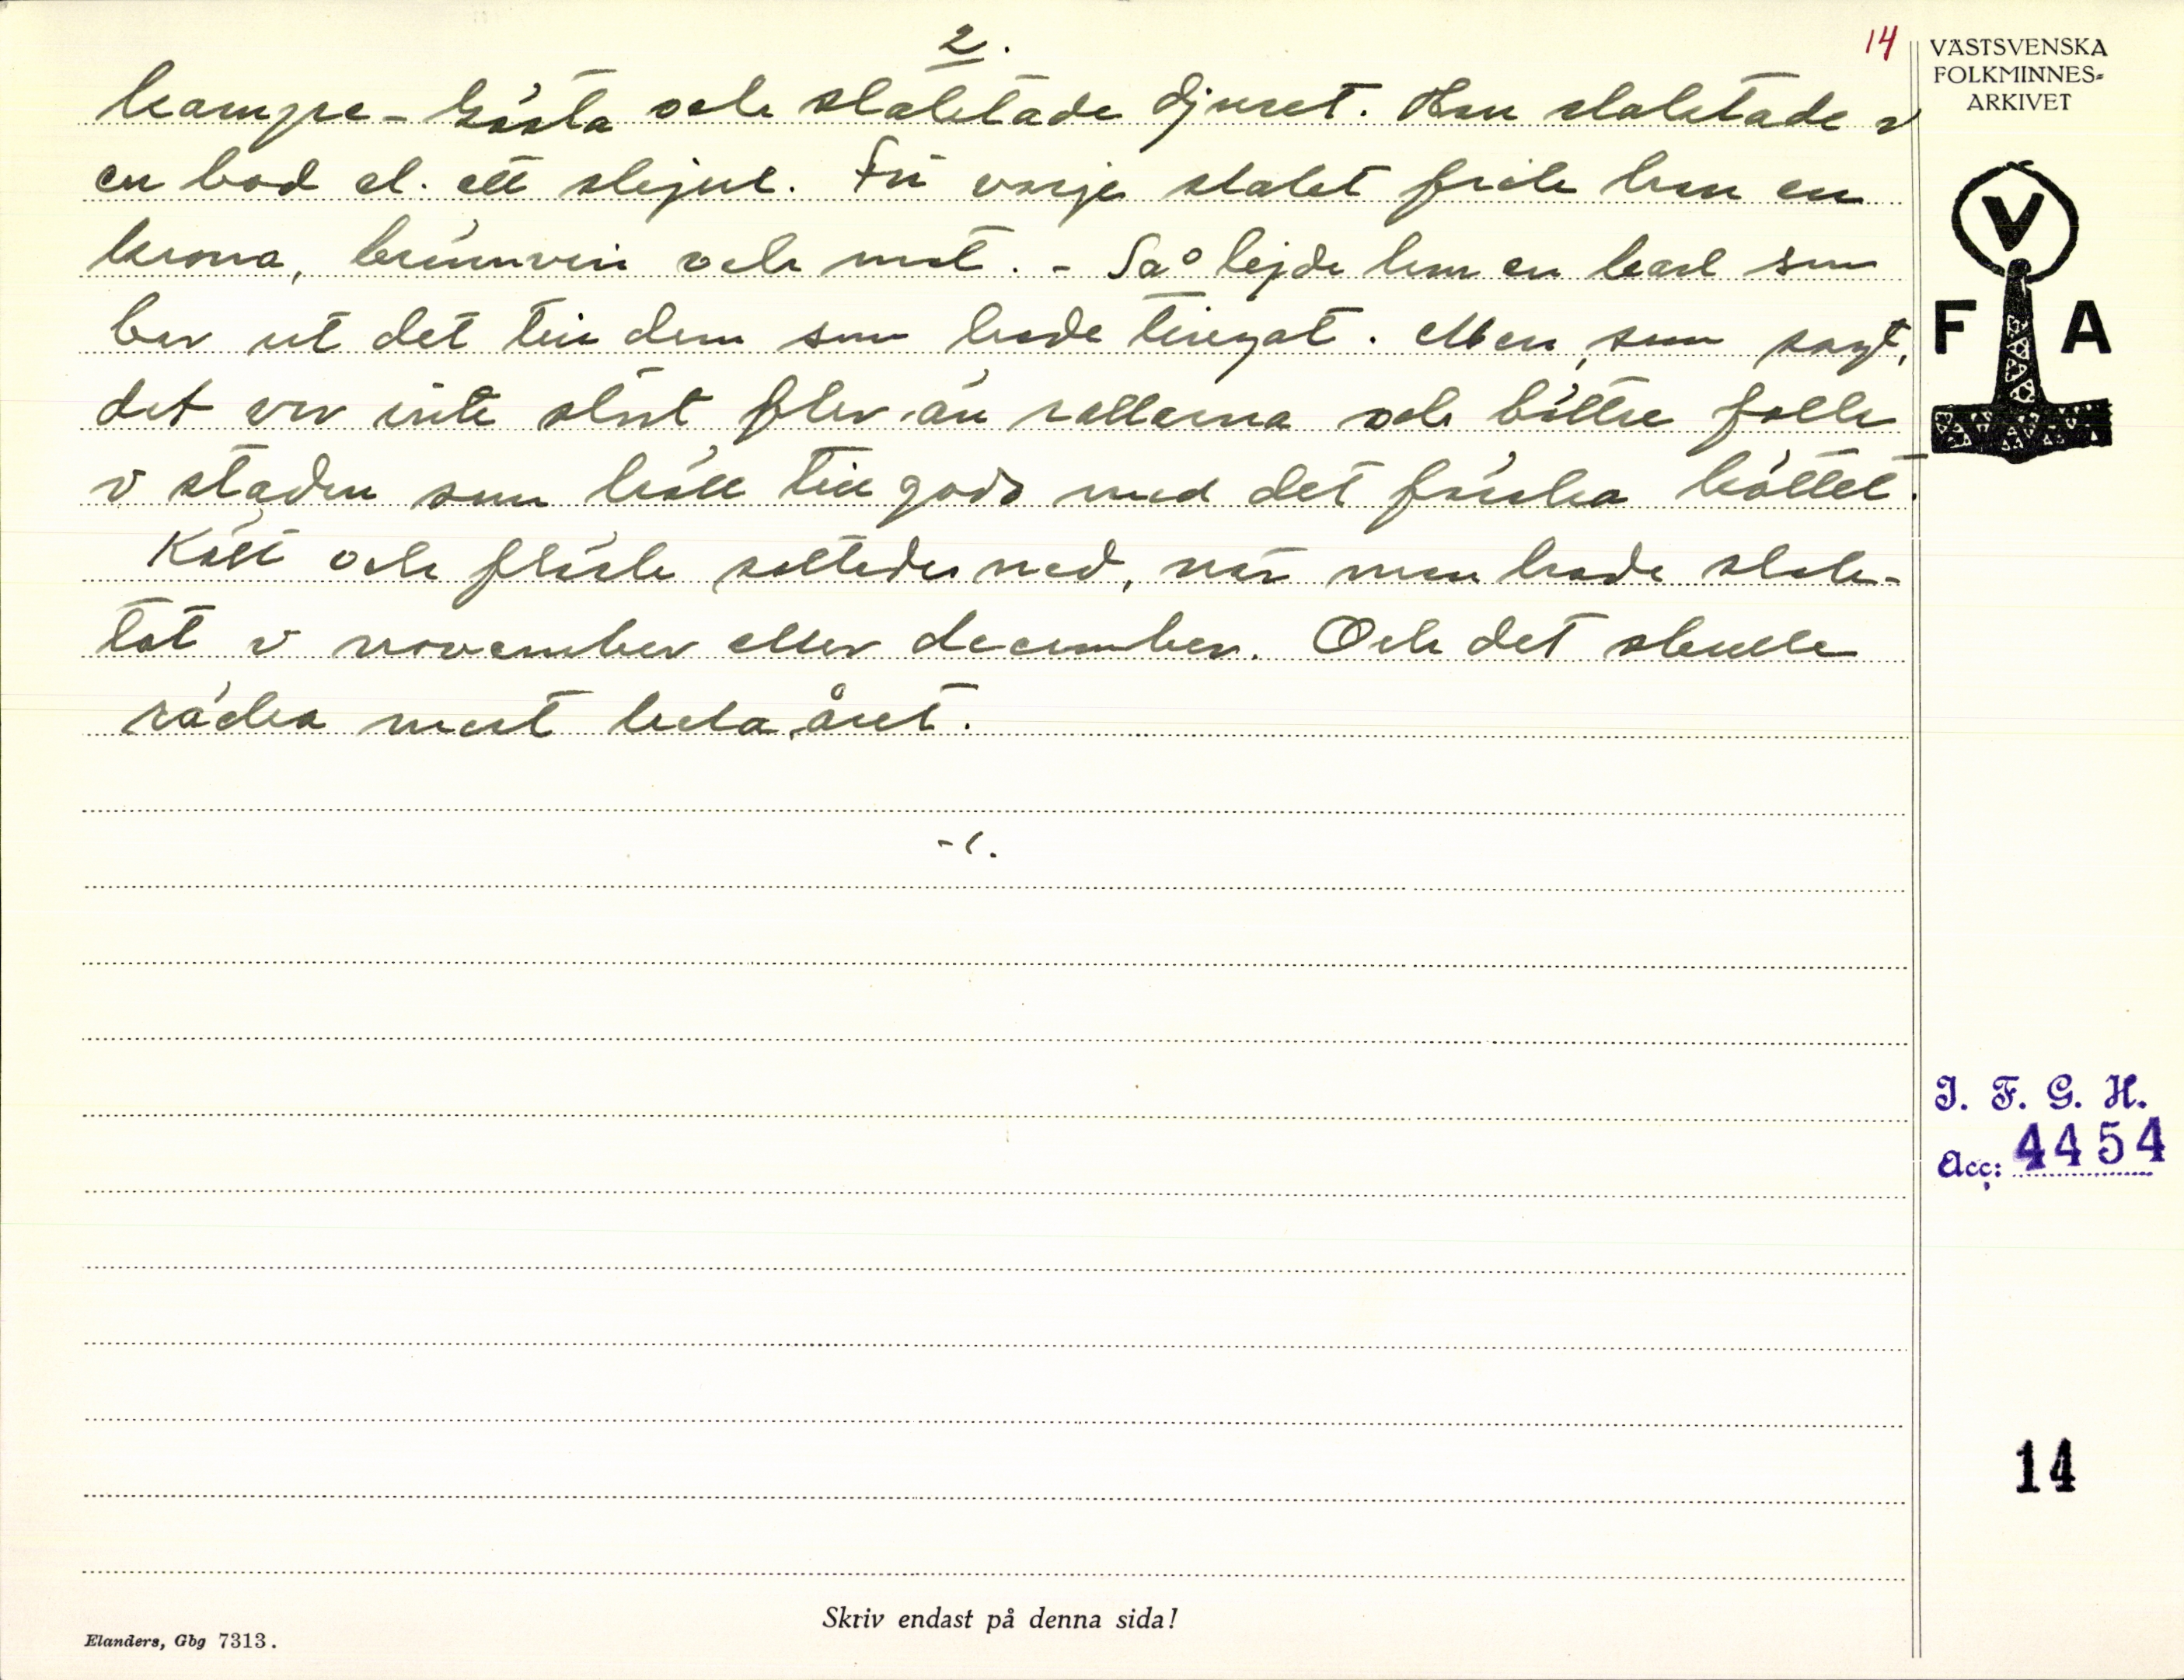 2.
14
kampe-Gösta och slaktade djuret. Han slaktade i
en bod el. ett skjul. För varje slakt fick han en
krona, brännvin och mat. - Så lejde han en karl som
bar ut det till dem som hade tingat. Men, som sagt,
det var inte stort fler än rallarna och bättre folk
i staden som höll till godo med det färska köttet.
Kött och fläsk saltades ned, när man hade slak-
tat i november eller december. Och det skulle
räcka mest hela året.
VÄSTSVENSKA
FOLKMINNES-
ARKIVET
V
F A
I. F. G. H.
Acc: 4454
14
Skriv endast på denna sida!
Elanders, Gbg 7313.